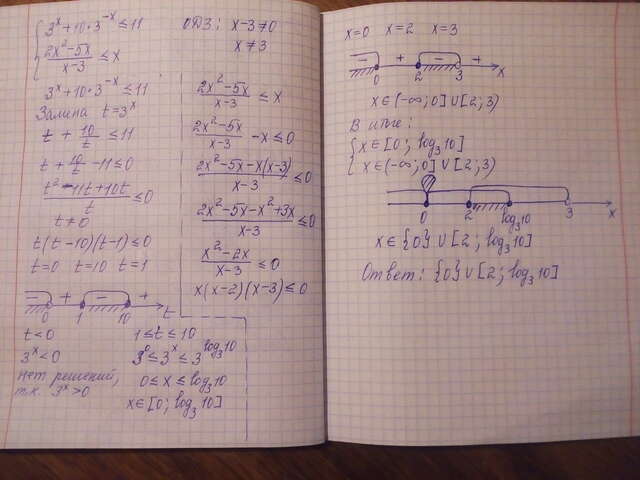 { 3^x + 10 · 3^{-x} ≤ 11
(2x² - 5x)/(x - 3) ≤ x
3^x + 10 · 3^{-x} ≤ 11
Замена t = 3^x
t + 10/t ≤ 11
t + 10/t - 11 ≤ 0
(t² - 11t + 10t)/t ≤ 0
t ≠ 0
t(t - 10)(t - 1) ≤ 0
t = 0 t = 10 t = 1
- + - +
0 1 10 t
t < 0 1 ≤ t ≤ 10
3^x < 0 3^0 ≤ 3^x ≤ 3^{log₃10}
нет решений, 0 ≤ x ≤ log₃10
т.к. 3^x > 0 x ∈ [0; log₃10]
ОДЗ: x - 3 ≠ 0
x ≠ 3
(2x² - 5x)/(x - 3) ≤ x
(2x² - 5x)/(x - 3) - x ≤ 0
(2x² - 5x - x(x - 3))/(x - 3) ≤ 0
(2x² - 5x - x² + 3x)/(x - 3) ≤ 0
(x² - 2x)/(x - 3) ≤ 0
x(x - 2)(x - 3) ≤ 0
x = 0 x = 2 x = 3
- + - +
0 2 3 x
x ∈ (-∞; 0] ∪ [2; 3)
В итоге:
{ x ∈ [0; log₃10]
x ∈ (-∞; 0] ∪ [2; 3)
0 2 log₃10 3 x
x ∈ {0} ∪ [2; log₃10]
Ответ: {0} ∪ [2; log₃10]